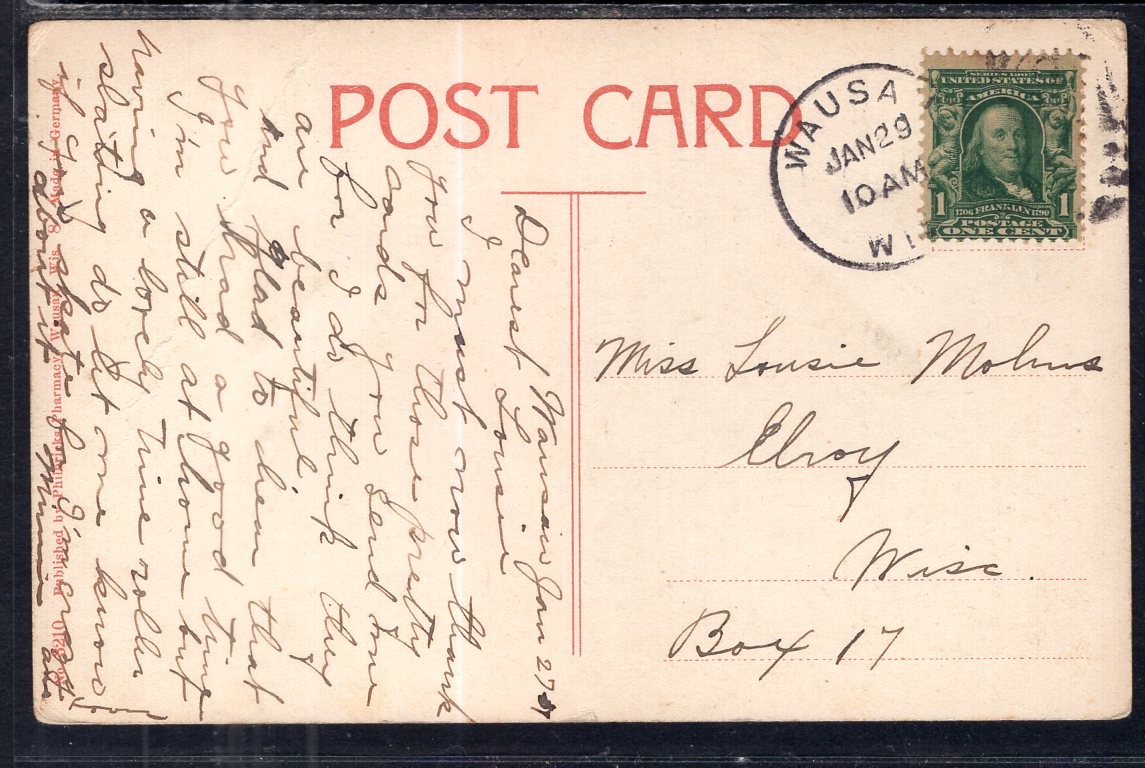 POST CARD
WAUSAU
JAN 29
10 AM
WI
SERIES 1902
UNITED STATES OF
AMERICA
1 1
1706 FRANKLIN 1790
POSTAGE
ONE CENT
Miss Lousie Mohns
Elroy
Wisc.
Box 17
Wausau Jan 27
Dearest Lousie
I must now thank
you for those pretty
cards you send me
for I do think they
are beautiful.
And glad to hear that
you had a good time
I'm still at home but
having a lovely time roller
skating do let me know
if you skate for I'm great
about it
Minnie
No. 3210 Published by Philbricks Pharmacy, Wausau, Wis. Made in Germany